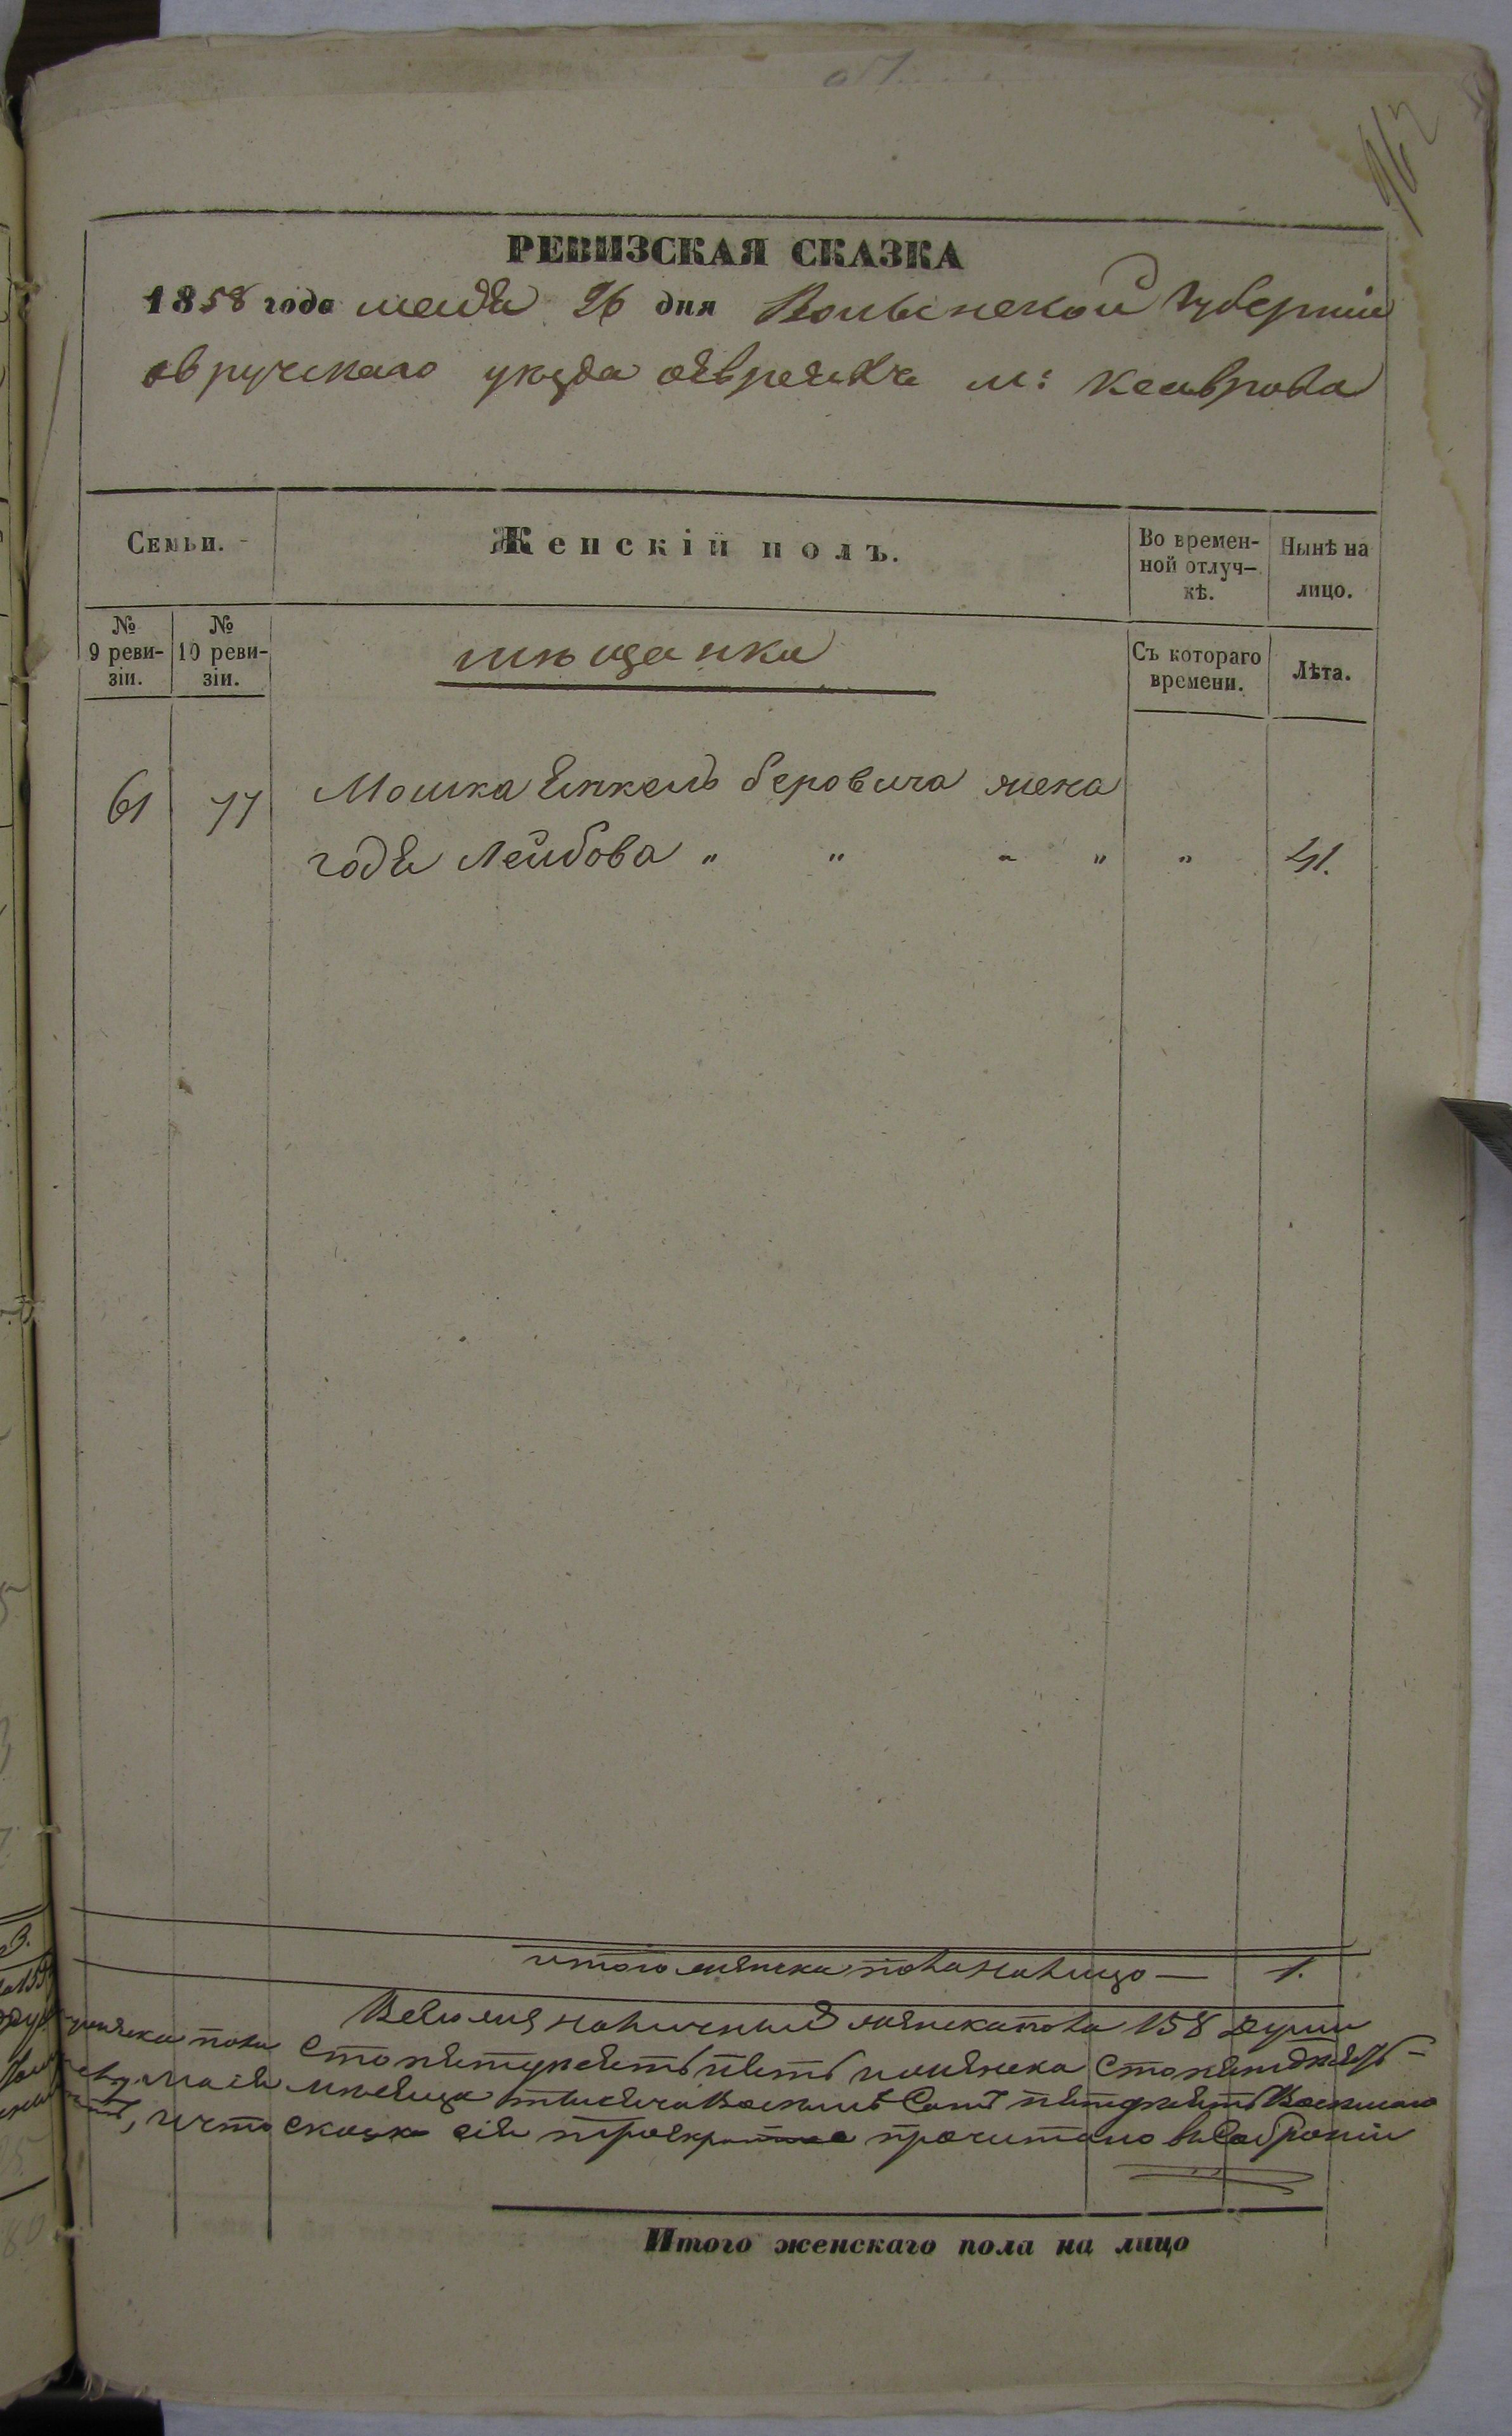 РЕВИЗСКАЯ СКАЗКА
1858 года маія 26 дня Волынской Губерніи
овручскаго уезда о евреяхъ м:
Семьи. Женскій полъ. Во времен-ной отлуч-кѣ. Нынѣ на лицо.
№ 9 реви-зіи. № 10 реви-зіи. мѣщанка Съ котораго времени. Лѣта.
61 77 Мошка Янкель беровича жена
годя Лейбова " " " " " 41.
итого женска пола на лицо — 1.
Всего наличныхъ женска пола 158 души
женска пола сто пятдесятъ
маія мѣсяца тысяча восемь сотъ пятдесятъ восьмаго
что сказка сія троекратно прочитано въ собраніи
Итого женскаго пола на лицо